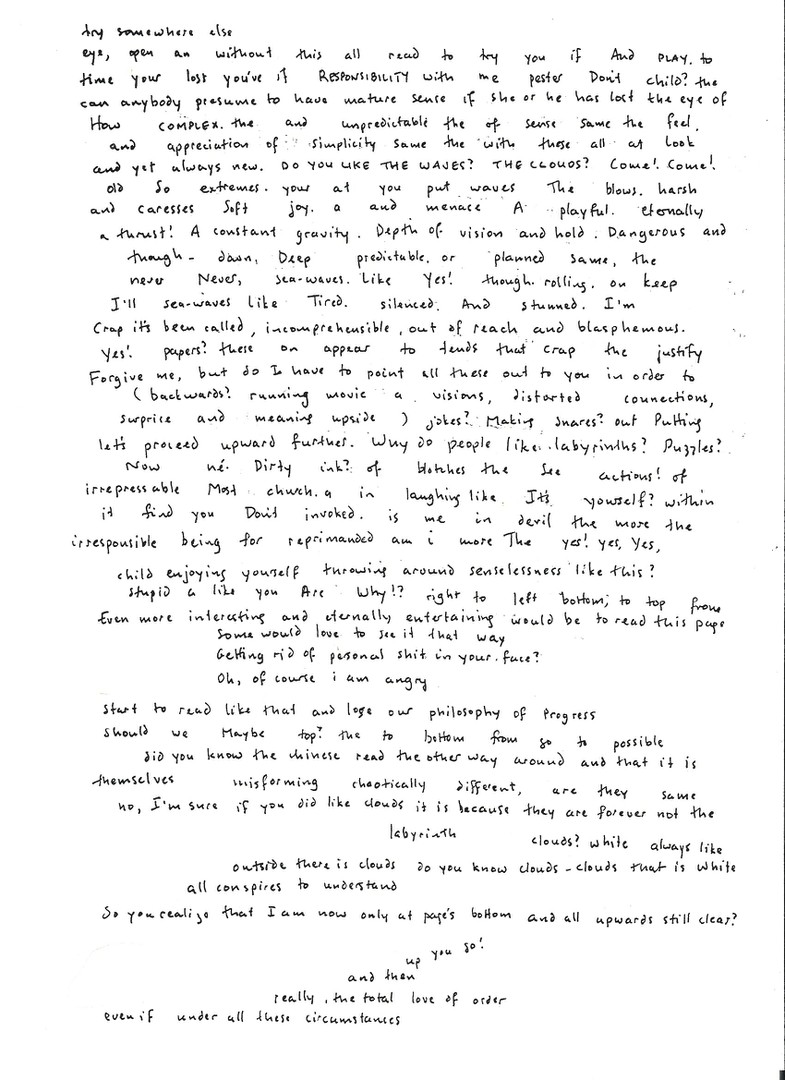 try somewhere else
eye, open an without this all read to try you if And PLAY. to
time your lost you've if RESPONSIBILITY with me pester Don't child? the
can anybody presume to have mature sense if she or he has lost the eye of
How COMPLEX. the and unpredictable the of sense same the feel,
and appreciation of simplicity same the with these all at look
and yet always new. DO YOU LIKE THE WAVES? THE CLOUDS? Come!. Come!.
old So extremes. your at you put waves The blows. harsh
and caresses Soft joy. a and menace A playful. eternally
a thrust! A constant gravity. Depth of vision and hold. Dangerous and
though - down, Deep predictable. or planned same, the
never Never, sea-waves. like Yes! though. rolling. on keep
I'll sea-waves like Tired. silenced. And stunned. I'm
Crap it's been called, incomprehensible, out of reach and blasphemous.
Yes! papers? these on appear to tends that crap the justify
Forgive me, but do I have to point all these out to you in order to
( backwards? running movie a visions, distorted connections,
surprise and meaning upside ) jokes? Making snares? out Putting
let's proceed upward further. Why do people like labyrinths? Puzzles?
Now né. Dirty ink? of blotches the See actions! of
irrepressable Most church. a in laughing like It's yourself? within
it find you Don't invoked. is me in devil the more the
irresponsible being for reprimanded am i more The yes! yes, Yes,
child enjoying yourself throwing around senselessness like this?
stupid a like you Are Why!? right to left bottom, to top from
Even more interesting and eternally entertaining would be to read this page
Some would love to see it that way
Getting rid of personal shit in your face?
Oh, of course i am angry
Start to read like that and lose our philosophy of Progress
should we Maybe top? the to bottom from go to possible
did you know the chinese read the other way around and that it is
themselves misforming chaotically different, are they same
no, I'm sure if you did like clouds it is because they are forever not the
labyrinth clouds? white always like
outside there is clouds do you know clouds - clouds that is white
all conspires to understand
So you realize that I am now only at page's bottom and all upwards still clear?
up you go!
and then
really, the total love of order
even if under all these circumstances